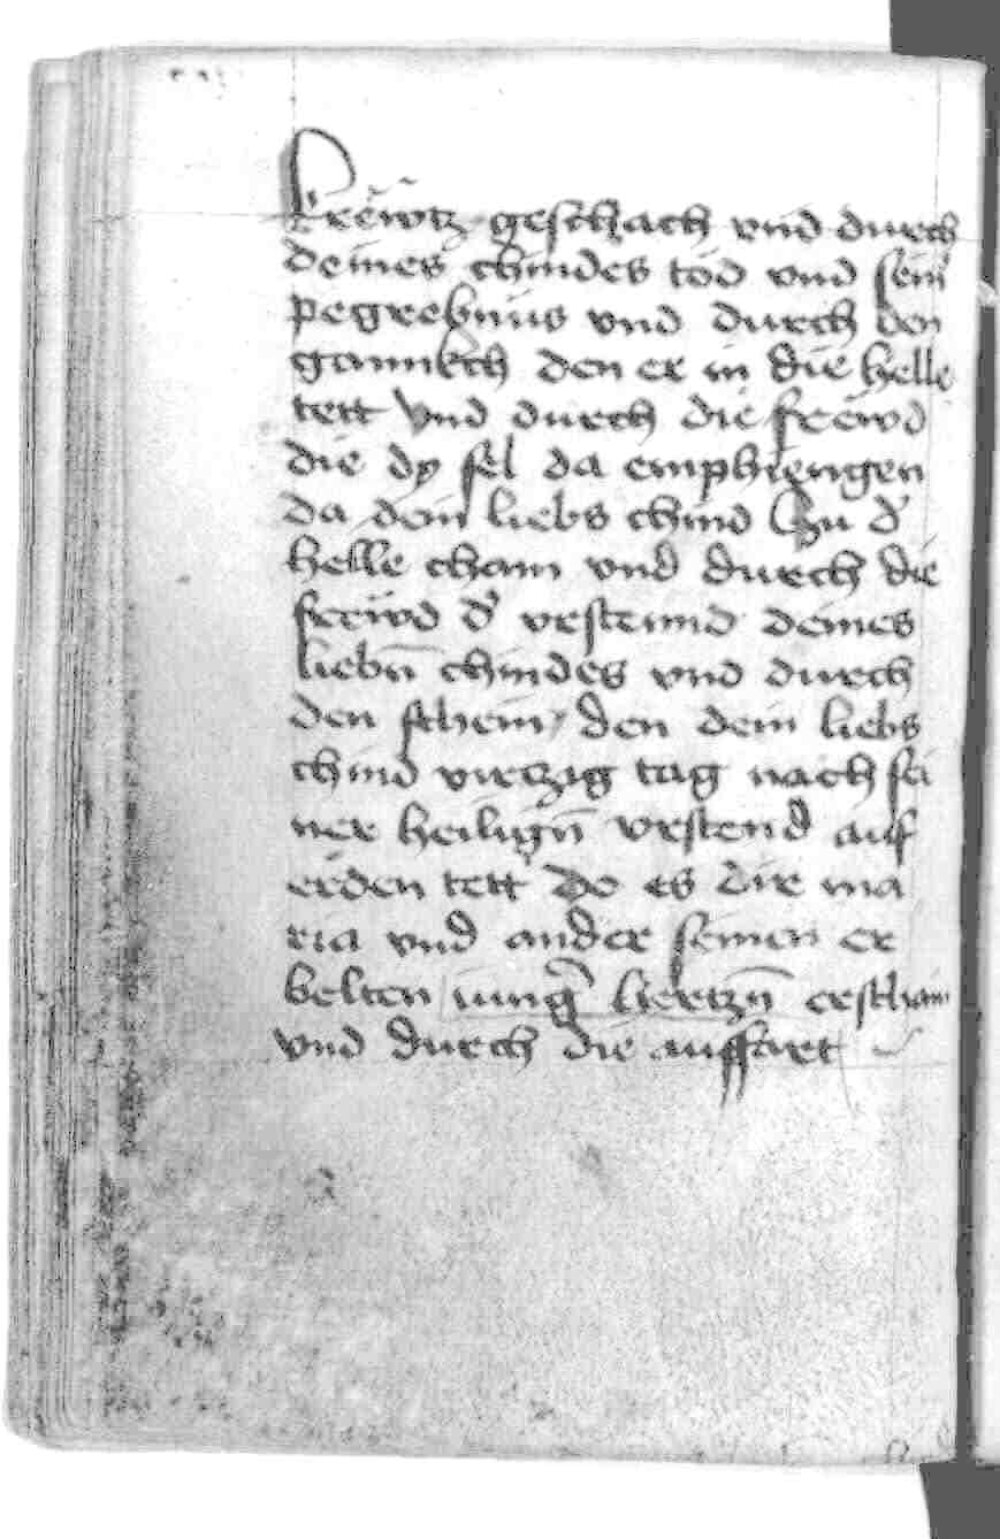 krëwtz geschach vnd durch
deines chindes tod vnd sein
pegrebnüs vnd durch den
gannkch den er in die helle
tett Vnd durch die frëwd
die dy sel da emphiengen
da dein liebs chind zu d'
helle cham vnd durch die
frëwd d' vrstennd deines
liebn̄ chindes vnd durch
den schein den dein liebs
chind virtzig tag nach sei
ner heilign̄ vrstend auf
erden tett Do es dir ma
ria vnd ander seinen er
belten iung' liertzn̄ erschain
vnd durch die auffart